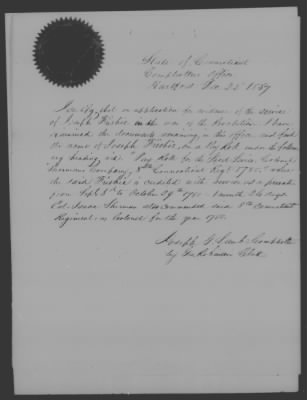 State of Connecticut
Comptrollers Office
Hartford Dec. 25 1857
I certify that on application for evidence of the service
of Joseph Frisbie in the war of the Revolution I have
examined the documents remaining in this office and find
the name of Joseph Frisbie, on a Pay Roll under the follow
ing heading viz: "Pay Roll for the
Company, 8th Connecticut Regt. 1780." where
the said Frisbie is credited with service as a private
from Sept. 8th to October 29th 1780 - 1 month 21 days
Col. Isaac Sherman also commanded said 8th Connecticut
Regiment as Colonel for the year 1780.
Joseph G. Lamb, Comptroller
by Clerk